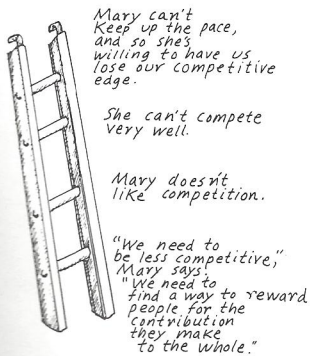 Mary can't
Keep up the pace,
and so she's
willing to have us
lose our competitive
edge.
She can't compete
very well.
Mary doesn't
like competition.
"We need to
be less competitive,"
Mary says!
"We need to
find a way to reward
people for the
contribution
they make
to the whole."